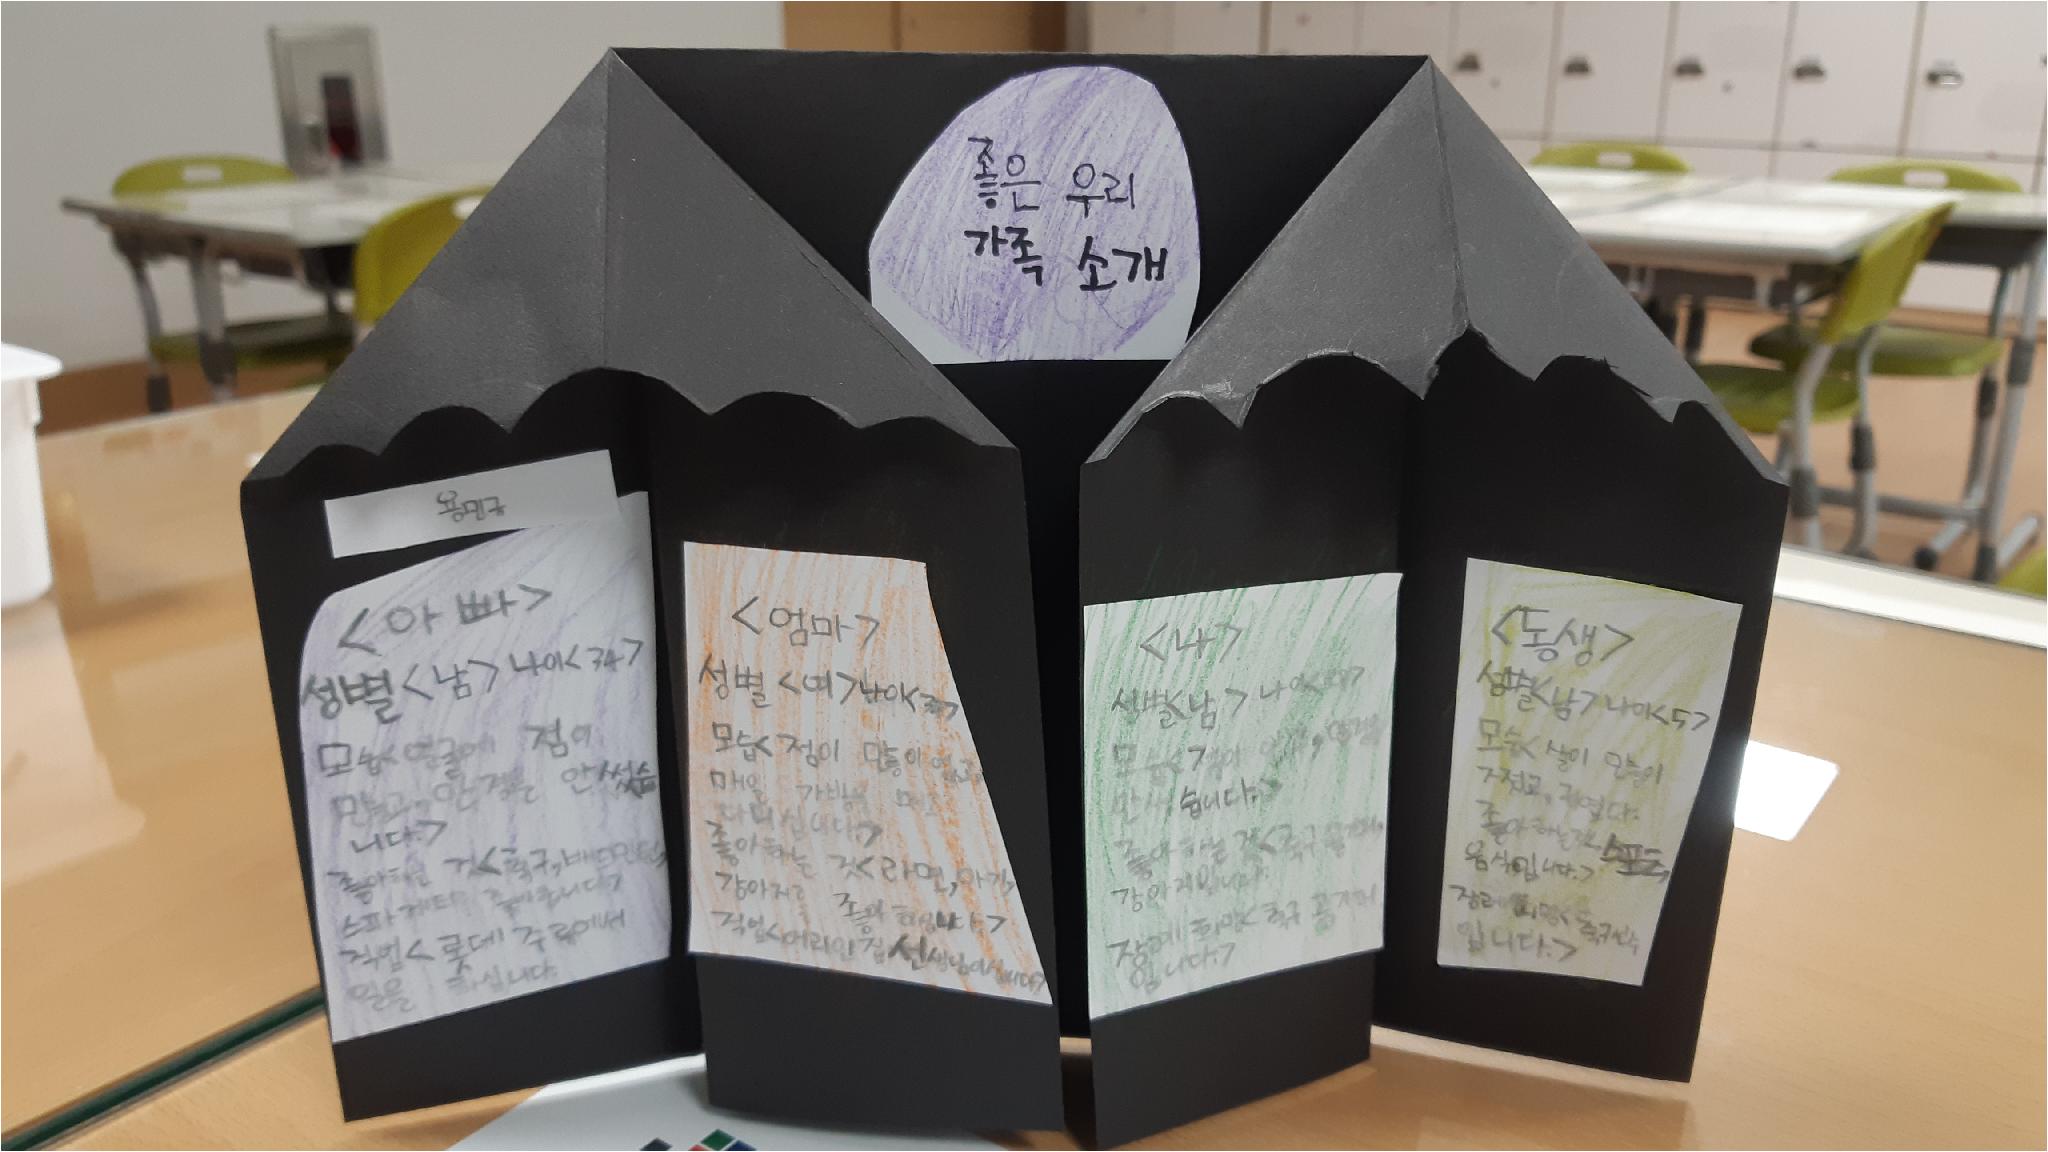 좋은 우리
가족 소개
용민국
<아빠>
성별<남> 나이<34>
모습<얼굴에 점이
많고, 안경은 안 썼습
니다.>
좋아하는 것<축구, 배드민턴,
스파게티 좋아합니다>
직업<롯데 주류에서
일을 하십니다.
<엄마>
성별 <여> 나이
모습<점이 많통이
매일 가방을 메고
다니십니다.>
좋아하는 것<라면,
강아지 좋아하십니다.>
직업<어린이집 선생님이십니다>
<나>
성별<남> 나이
모습<점이
안 습니다.>
좋아하는 것<축구
강아지입니다.
장래 희망<축구
입니다.>
<동생>
성별<남> 나이<5>
모습<살이 많통이
귀엽다.
좋아하는것
음식입니다.>
장래 희망<축구선수
입니다.>